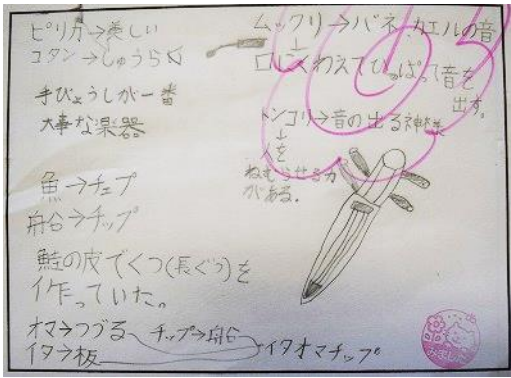 ピリカ→美しい
コタン→しゅうらく
手びょうしが一番
大事な楽器
魚→チェプ
舟谷→チップ
鮭の皮でくつ(長ぐつ)を
作っていた。
オマ→つづる
チップ→舟谷
イタ→板
イタオマチップ
ムックリ→バネ、カエルの音
↓
口にくわえてひっぱって音を
出す。
トンコリ→音の出る神様
↓
人を
ねむらせる力
がある。